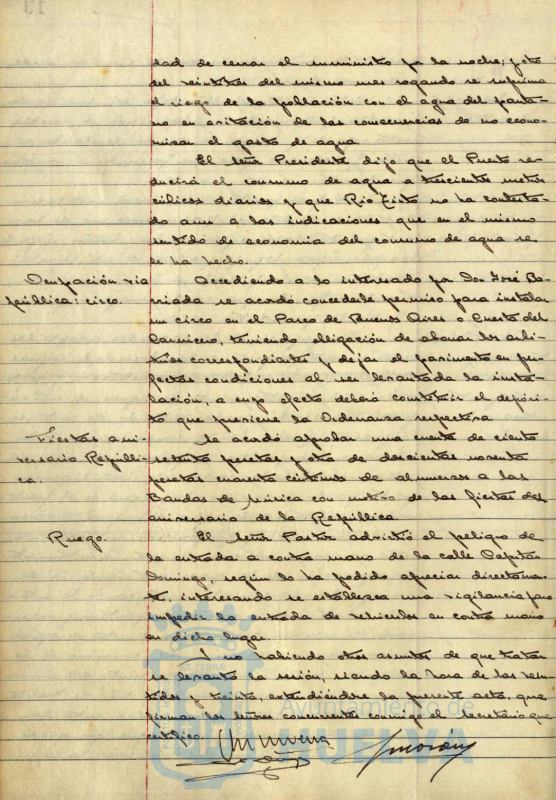 dad de cerrar el suministro por la noche; y otra
del veintitres del mismo mes rogando se suprima
el riego de la población con el agua del panta-
no en evitación de las consecuencias de no econo-
mizar el gasto de agua
El Señor Presidente dijo que el Puerto re-
ducirá el consumo de agua a trescientos metros
cúbicos diarios y que Rio Tinto no ha contesta-
do aun a las indicaciones que en el mismo
sentido de economia del consumo de agua se
le ha hecho.
Ocupación via
pública: circo.
Accediendo a lo interesado por Don José Ba-
rriada se acordó concederle permiso para instalar
un circo en el Paseo de Buenos Aires o Cuesta del
Carnicero, teniendo obligación de abonar los arbi-
trios correspondientes y dejar el pavimento en per-
fectas condiciones al ser levantada la insta-
lación, a cuyo efecto deberá constituir el depósi-
to que previene la Ordenanza respectiva
Fiestas ani-
versario Repúbli-
ca.
Se acordó aprobar una cuenta de ciento
setenta pesetas y otra de doscientas noventa
pesetas cuarenta centimos de almuerzos a las
Bandas de Música con motivo de las fiestas del
aniversario de la República
Ruego.
El Señor Pastor advirtió el peligro de
la entrada a contra mano de la calle Capitán
Domingo, según lo ha podido apreciar directamen-
te, interesando se establezca una vigilancia para
impedir la entrada de vehiculos en contra mano
en dicho lugar.
Y no habiendo otros asuntos de que tratar
se levantó la sesión, siendo la hora de las vein-
tidos y treinta, extendiéndose la presente acta, que
firman los Señores concurrentes conmigo el Secretario que
certifico.
Ayuntamiento de
HUELVA